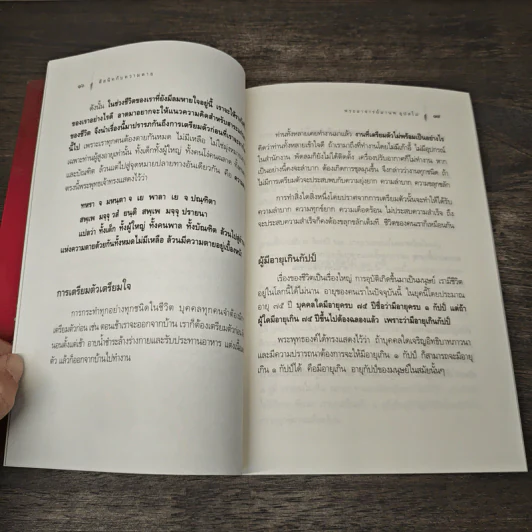 ๑๖ คิดนัยกับความตาย
ดังนั้น ในช่วงชีวิตของเราที่ยังมีลมหายใจอยู่นี้ เราจะได้
ของเราอย่างไรดี อาตมาอยากจะให้แนวความคิดสำหรับ
ของชีวิต จึงนำเรื่องนี้มาปรารภถึงการเตรียมตัวก่อนที่เรา
นี้ไป เพราะเราทุกคนต้องตายกันหมด ไม่มีเหลือ ไม่ใช่
เฉพาะท่านผู้สูงอายุเท่านั้น ทั้งเด็กทั้งผู้ใหญ่ ทั้งคนโง่คนฉลาด
และบัณฑิต ล้วนแต่ไปสู่จุดหมายปลายทางอันเดียวกัน คือ
ทรงนี้พระพุทธเจ้าทรงแสดงไว้ว่า
ทหรา จ มหนฺตา จ เย พาลา เย จ ปณฺฑิตา
สพฺเพ มจฺจุ วสํ ยนฺติ สพฺเพ มจฺจุ ปรายนา
แปลว่า ทั้งเด็ก ทั้งผู้ใหญ่ ทั้งคนพาล ทั้งบัณฑิต ล้วนไปสู่
แห่งความตายด้วยกันทั้งหมดไม่มีเหลือ ล้วนมีความตายอยู่เบื้อง
การเตรียมตัวเตรียมใจ
การกระทำทุกอย่างทุกชนิดในชีวิต บุคคลทุกคนจำต้อง
เตรียมตัวก่อน เช่น ตอนเช้าเราจะออกจากบ้าน เราก็ต้องเตรียมตัวก่อน
นอนตั้งแต่เช้า อาบน้ำชำระล้างร่างกายและรับประทานอาหาร แต่งเนื้อ
ตัว แล้วก็ออกจากบ้านไปทำงาน
ท่านทั้งหลายเคยทำงานมาแล้ว งานที่เตรียมตัวไม่พร้อมเป็นอย่างไร
คิดว่าท่านทั้งหลายเข้าใจดี ถ้าเรามาถึงที่ทำงานโดยไม่มีเก้าอี้ ไม่มีอุปกรณ์
ในสำนักงาน พัดลมก็ยังไม่ได้ติดตั้ง เครื่องปรับอากาศก็ไม่ทำงาน
เป็นอย่างนี้คงจะลำบาก ต้องเกิดการชุลมุนขึ้น จึงกล่าวว่างานทุกชนิด ถ้า
ไม่มีการเตรียมตัวก็จะประสบพบกับความยุ่งยาก ความลำบาก ความขลุกขลัก
การทำสิ่งใดสิ่งหนึ่งโดยปราศจากการเตรียมตัวนั้นจะทำให้ได้รับ
ความลำบาก ความทุกข์ยาก ความเดือดร้อน ไม่ประสบความสำเร็จ ถึง
จะประสบความสำเร็จก็คงต้องขลุกขลักเต็มที ชีวิตของคนเราก็เหมือนกัน
ผู้มีอายุเกินกัปป์
เรื่องของชีวิตเป็นเรื่องใหญ่ การอุบัติเกิดขึ้นมาเป็นมนุษย์ เรามีชีวิต
อยู่ในโลกนี้ได้ไม่นาน อายุของคนเราในปัจจุบันนี้ ในยุคนี้โดยประมาณ
อายุ ๗๕ ปี บุคคลใดมีอายุครบ ๗๕ ปีชื่อว่ามีอายุครบ ๑ กัปป์ แต่ถ้า
ผู้ใดมีอายุเกิน ๗๕ ปีขึ้นไปต้องฉลองแล้ว เพราะว่ามีอายุเกินกัปป์
พระพุทธองค์ได้ทรงแสดงไว้ว่า ถ้าบุคคลใดเจริญอิทธิบาทภาวนา
และมีความปรารถนาต้องการจะให้มีอายุเกิน ๑ กัปป์ ก็สามารถจะมีอายุ
เกิน ๑ กัปป์ได้ คือมีอายุเกิน อายุกัปป์ของมนุษย์ในสมัยนั้นๆ